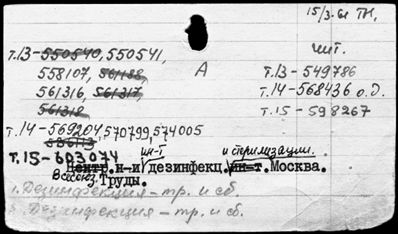 15/3.61 ТК.
чит.
т.13-550540, 550541,
558107, 561138,
561316, 561317,
561318
А
т.13-549786
т.14-568436 о.д.
т.15-598267
т.14-569204, 570799, 574005
586113
т.15-603074
ин-т и стерилизации.
Центр.н-и дезинфекц.ин-т.Москва.
Всесоюз.
Труды.
1. Дезинфекция – тр. и сб.
2. Дезинфекция – тр. и сб.